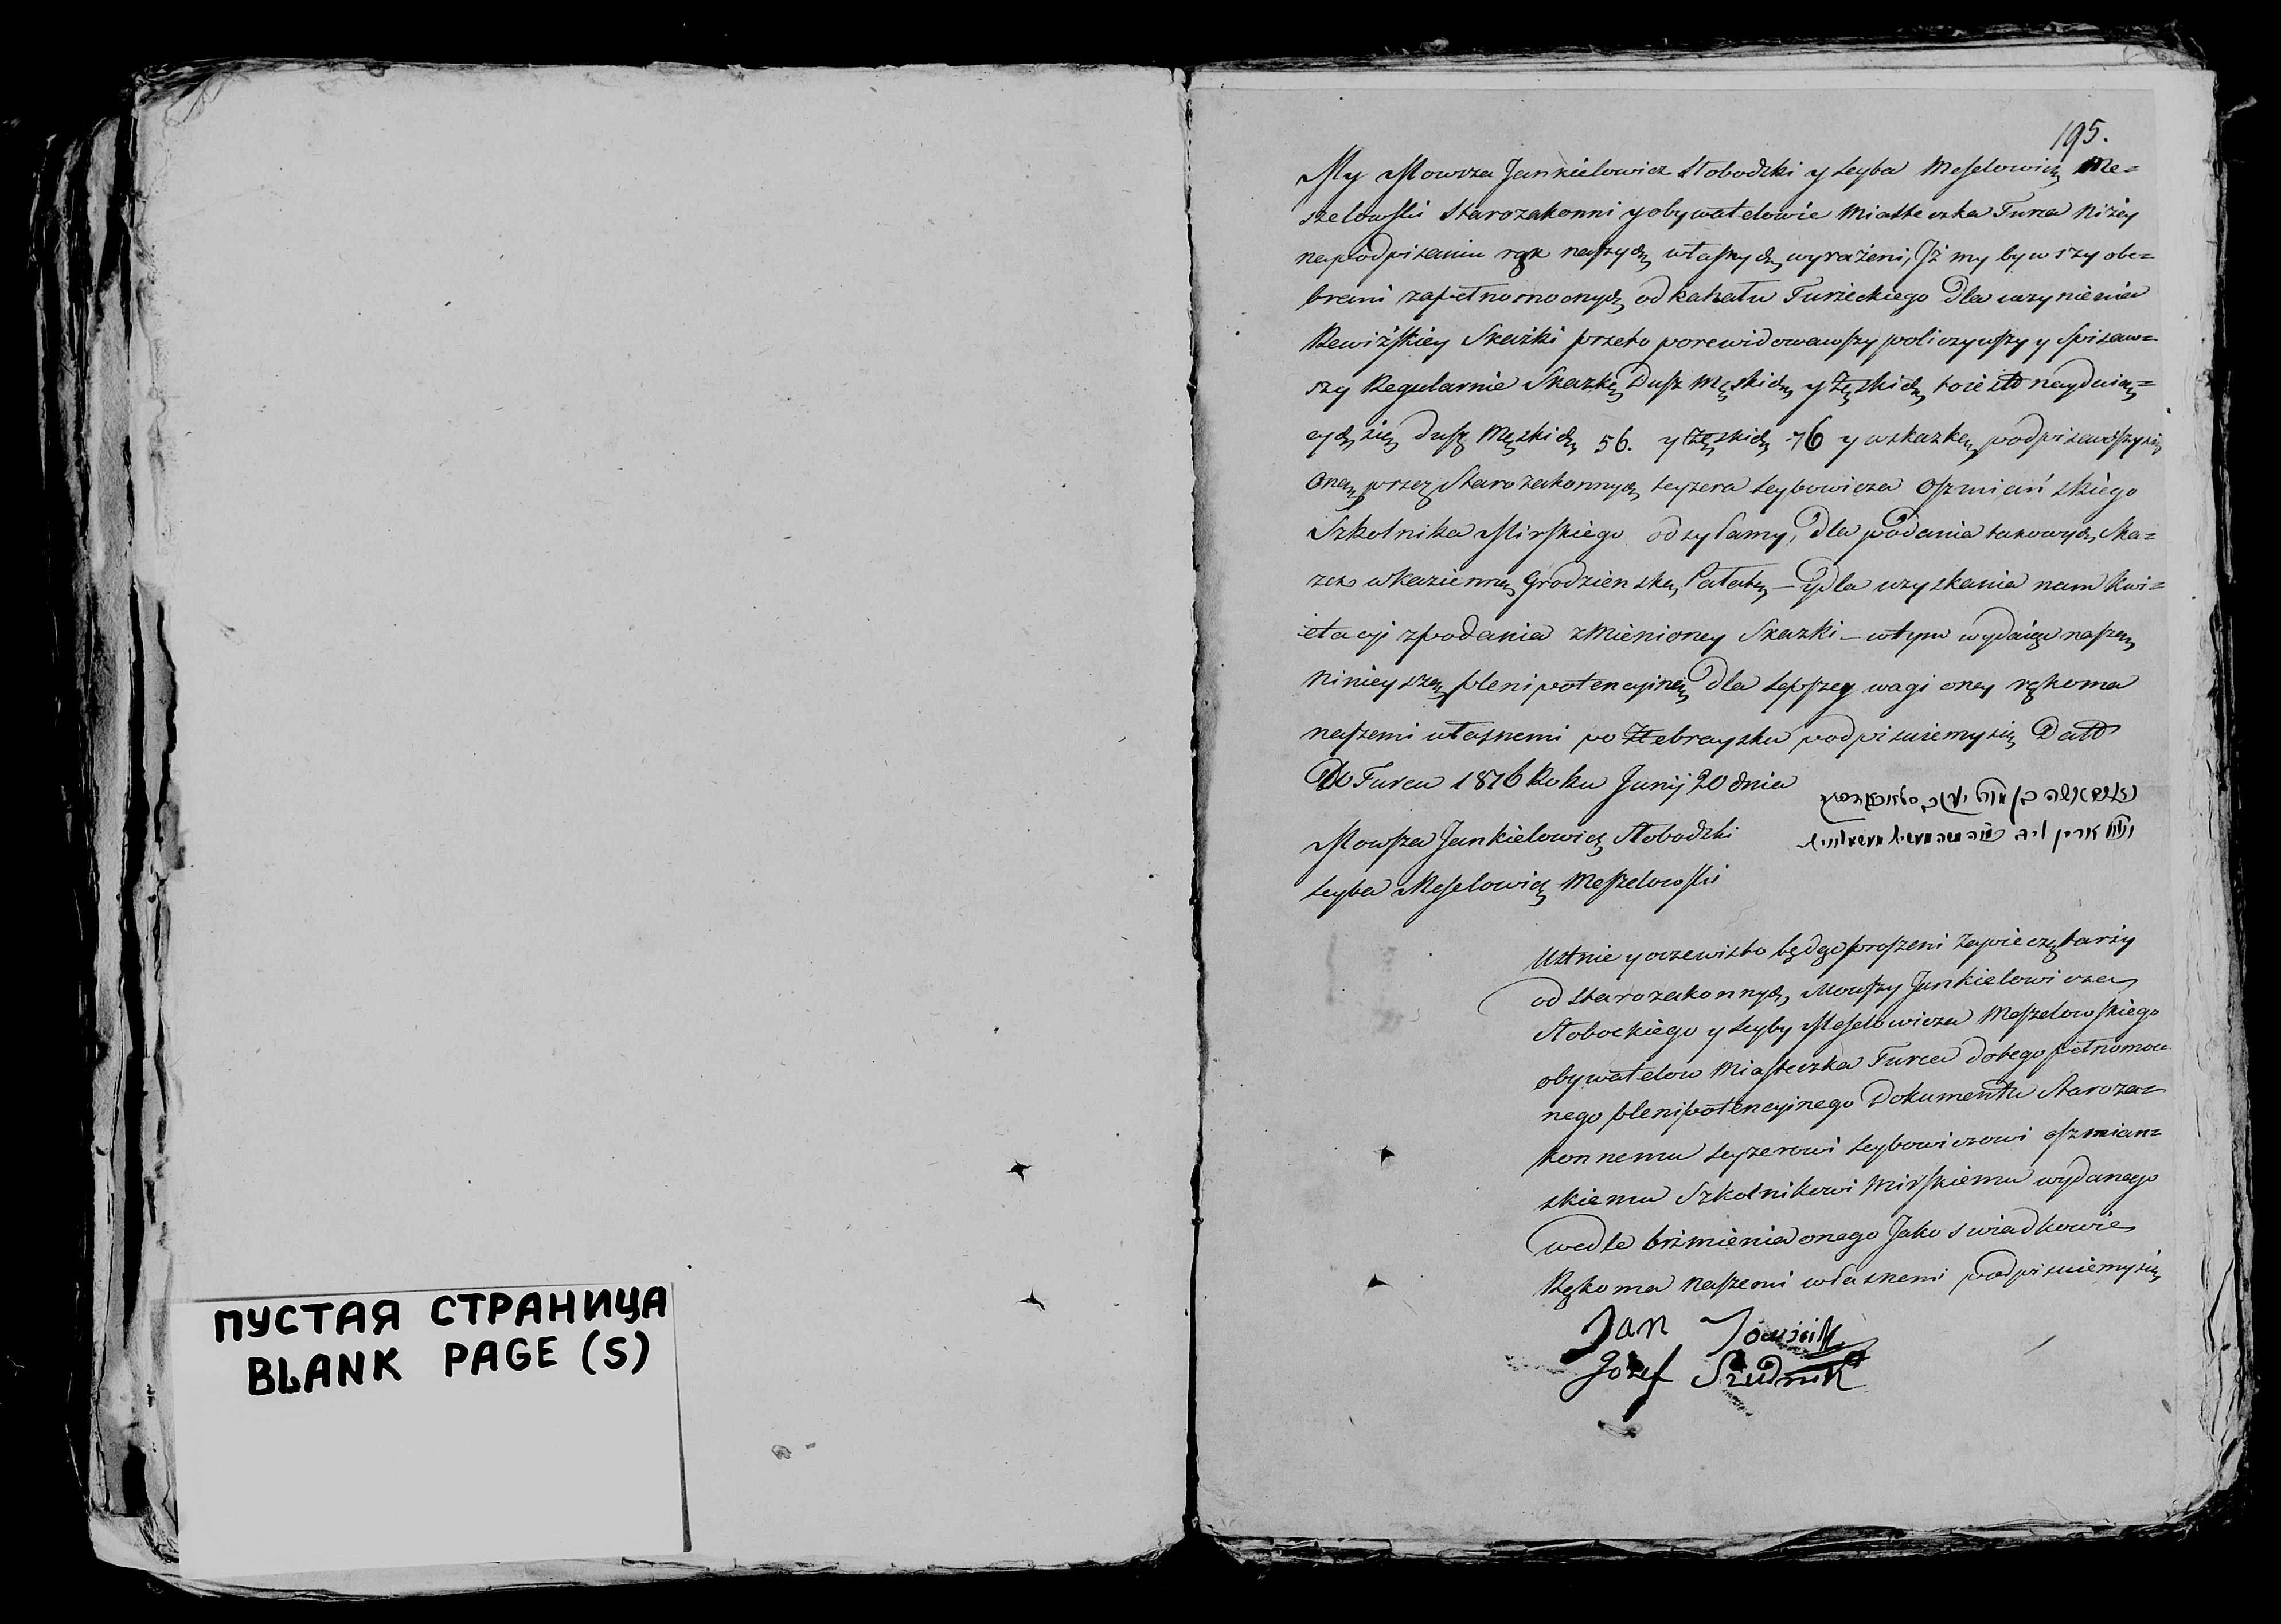 ПУСТАЯ СТРАНИЦА
BLANK PAGE (S)
195.
My Mowsza Jankielowicz Słobodzki y Leyba Meselowicz Me=
szelowski Starozakonni y obywatelowie Miasteczka Turca Niżey
na podpisaniu rąk naszych własnych wyrażeni, Iż my bywszy obe=
brani za pełnomocnych od kahału Turzeckiego Dla uczynienia
Rewizskiey Skazki przeto porewidowawszy policzywszy y spisaw=
szy Regularnie Skazkę Dusz Męskich y Żęskich to iest nayduią=
cych się dusz Męskich 56. y Żęskich 76 y w skazkę podpisawszy się
Oną przez Starozakonnych Leyzera Leybowicza Oszmiańskiego
Szkolnika Mirskiego odsyłamy, Dla podania takowych Ska=
zek w kazienną Grodzienską Pałatę – y dla uzyskania nam kwi=
etacji z podania zmienioney Skazki – w tym wydaiąc naszą
ninieyszą plenipotencyiną dla lepszey wagi oney rękoma
naszemi własnemi po Żebraysku podpisuiemy się Datt
w Turcu 1816 Roku Junij 20 dnia
Mowsza Jankielowicz Słobodzki
Leyba Meselowicz Meszelowski
Ustnie y oczewisto będąc proszeni za pieczętarzy
od starozakonnych Mowszy Jankielowicza
Słobockiego y Leyby Meselowicza Meszelowskiego
obywatelow Miasteczka Turca do tego pełnomoc
nego plenipotencyinego Dokumentu Staroza=
konnemu Leyzerowi Leybowiczowi oszmian=
skiemu Szkolnikowi Mirskiemu wydanego
wedle brzmienia onego Jako swiadkowie
Rękoma naszemi własnemi podpisuiemy się
Jan
Jozef